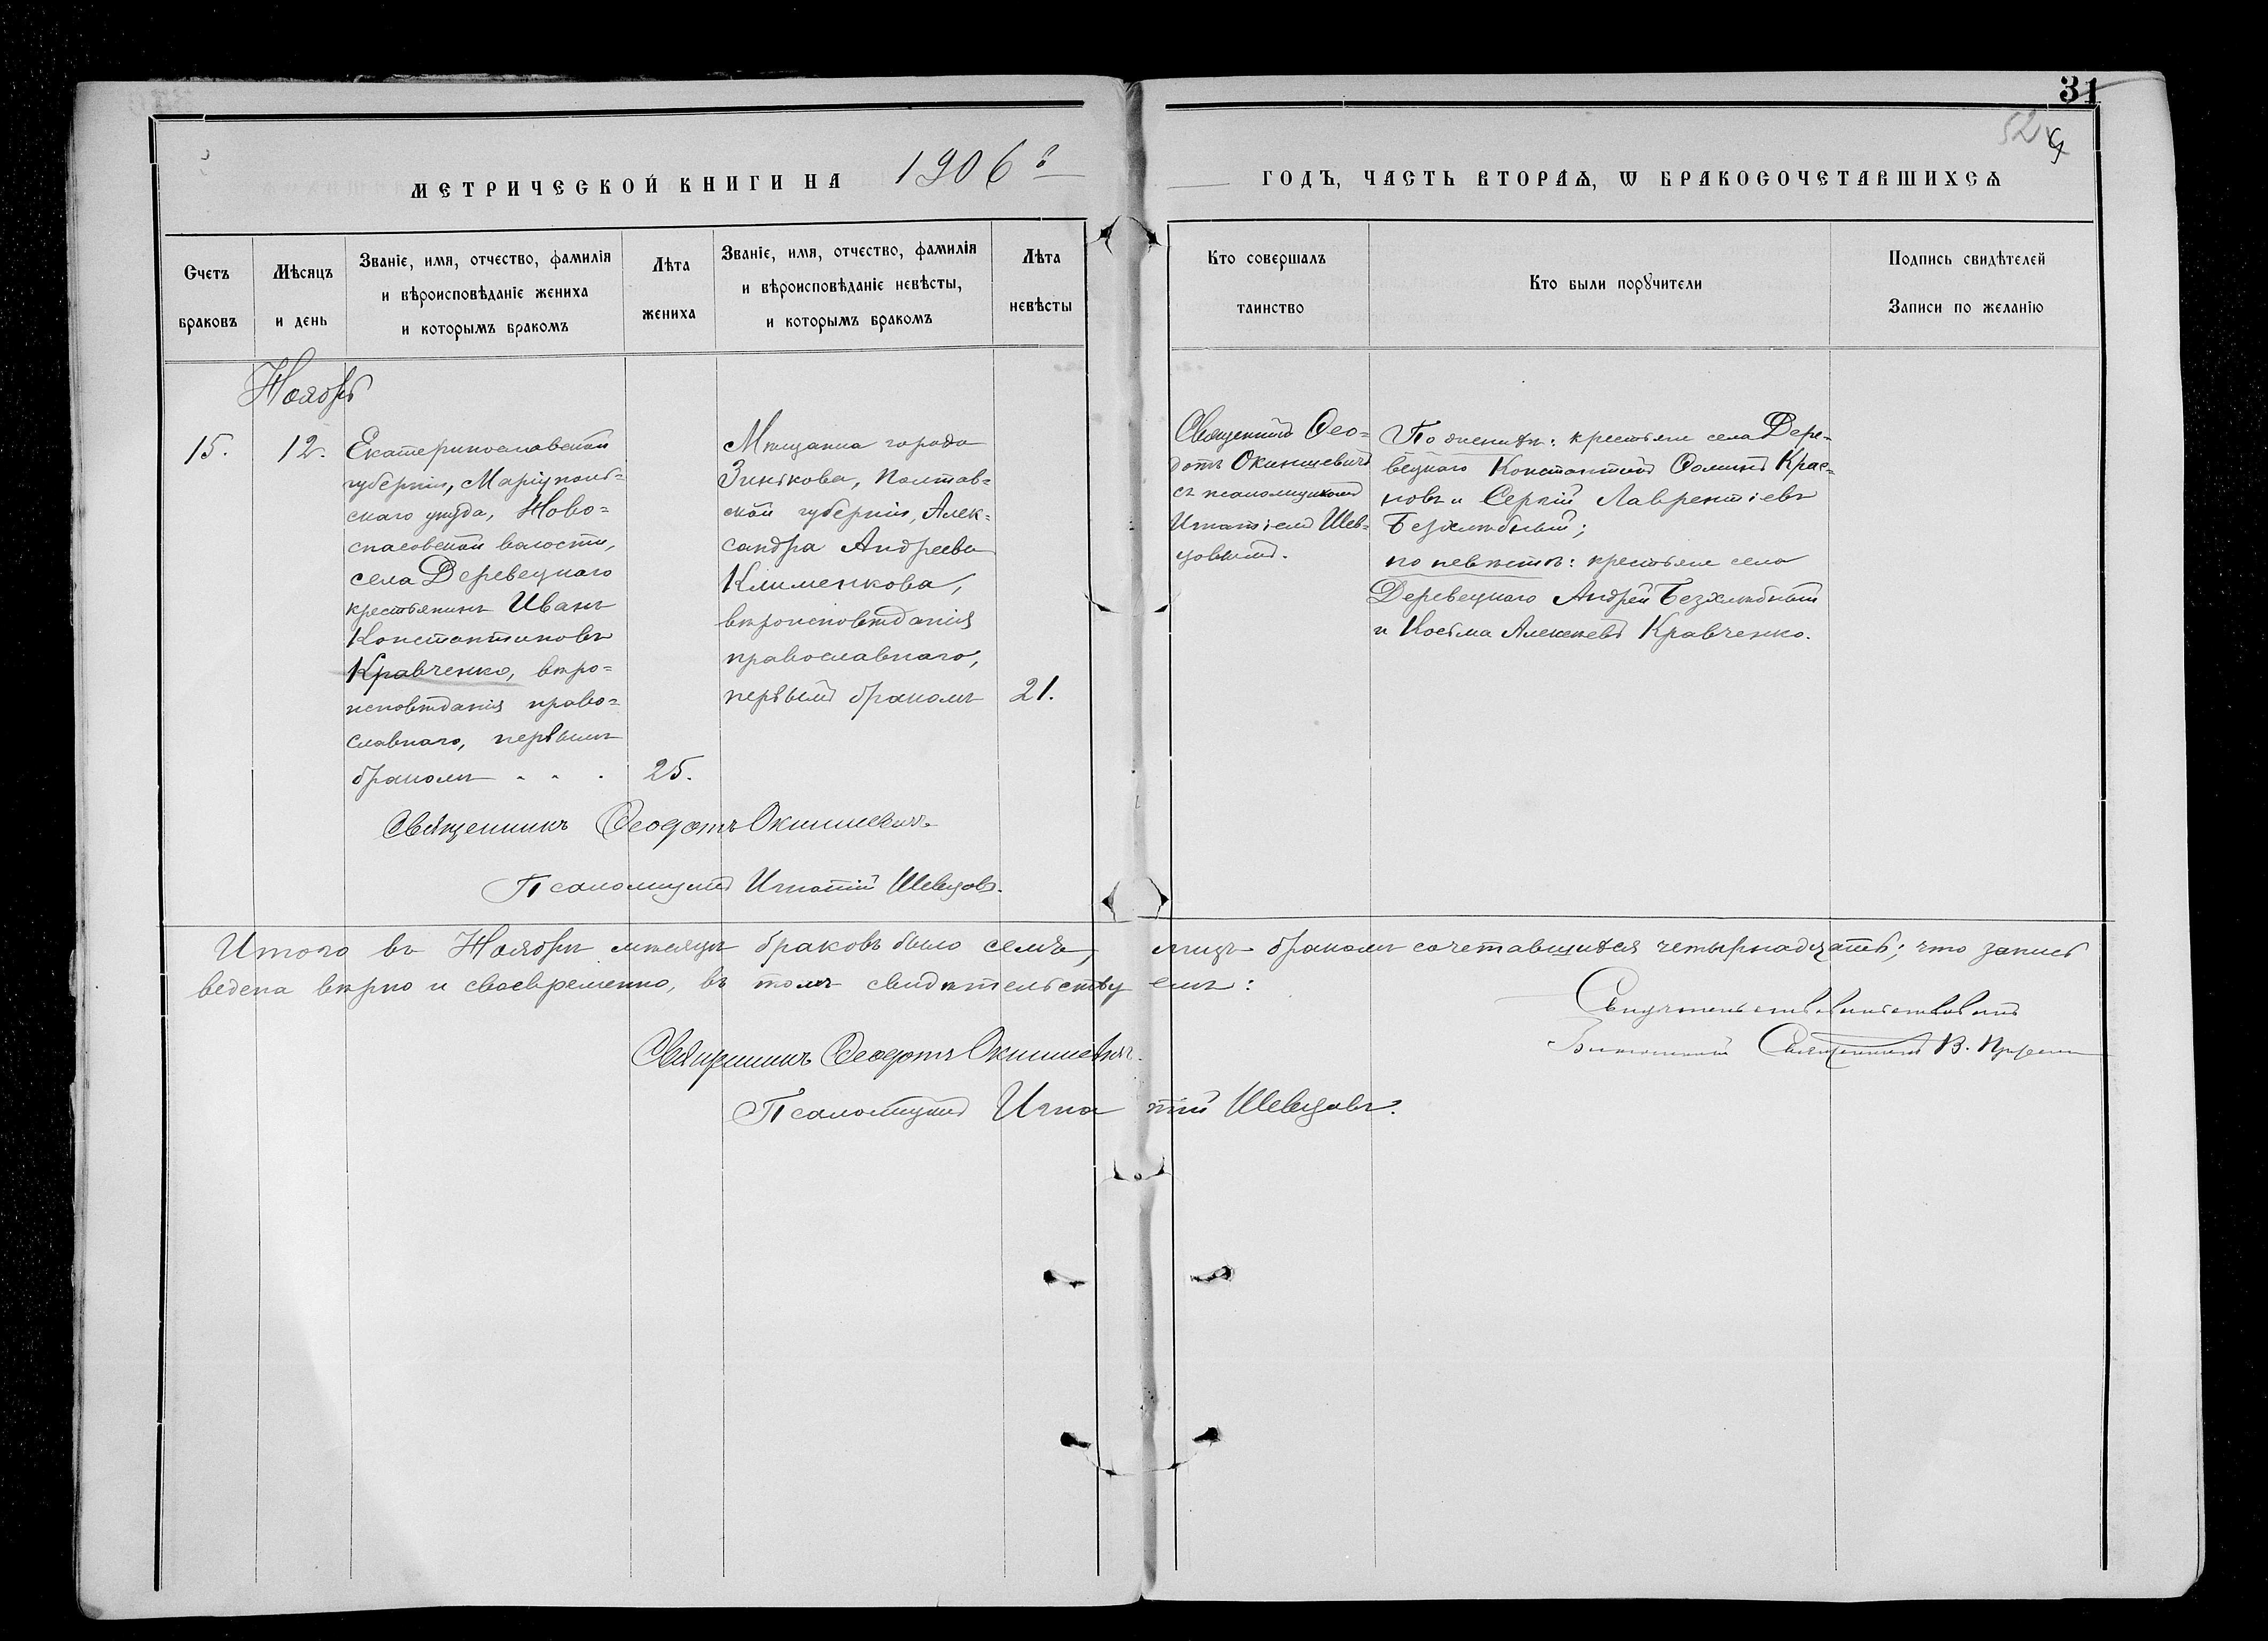 31
52
МЕТРИЧЕСКОЙ КНИГИ НА 1906й
ГОДЪ, ЧАСТЬ ВТОРАѦ, Ѡ БРАКОСОЧЕТАВШИХСѦ
Счетъ
браковъ
Мѣсяцъ
и день
Званіе, имя, отчество, фамилія
и вѣроисповѣданіе жениха
и которымъ бракомъ
Лѣта
жениха
Званіе, имя, отчество, фамилія
и вѣроисповѣданіе невѣсты,
и которымъ бракомъ
Лѣта
невѣсты
Кто совершалъ
таинство
Кто были порꙋчители
Подпись свидѣтелей
Записи по желанію
Ноябрь
15.
12.
Екатеринославской
губерніи, Маріуполь=
скаго уѣзда, Ново=
спасовской волости,
села Деревецкаго
крестьянинъ Иванъ
Константиновъ
Кравченко, вѣро=
исповѣданія право=
славнаго, первымъ
бракомъ
25.
Мѣщанка города
Зинькова, Полтав=
ской губерніи, Алек=
сандра Андреева
Клименкова,
вѣроисповѣданія
православнаго,
первымъ бракомъ
21.
Священникъ Ѳео=
дотъ Окиншевичъ
съ псаломщикомъ
Игнатіемъ Шев=
цовымъ.
По женихѣ: крестьяне села Дере=
вецкаго Константинъ Ѳоминъ Крас=
новъ и Сергій Лаврентіевъ
Безхлѣбный;
по невѣстѣ: крестьяне села
Деревецкаго Андрей Безхлѣбный
и Косьма Алексѣевъ Кравченко.
Священникъ Ѳеодотъ Окиншевичъ
Псаломщикъ Игнатій Шевцовъ.
Итого въ Ноябрѣ мѣсяцѣ браковъ было семь, лицъ бракомъ сочетавшихся четырнадцать; что запись
ведена вѣрно и своевременно, въ томъ свидѣтельствуемъ:
Священникъ Ѳеодотъ Окиншевичъ.
Псаломщикъ Игнатій Шевцовъ.
Священникъ В.